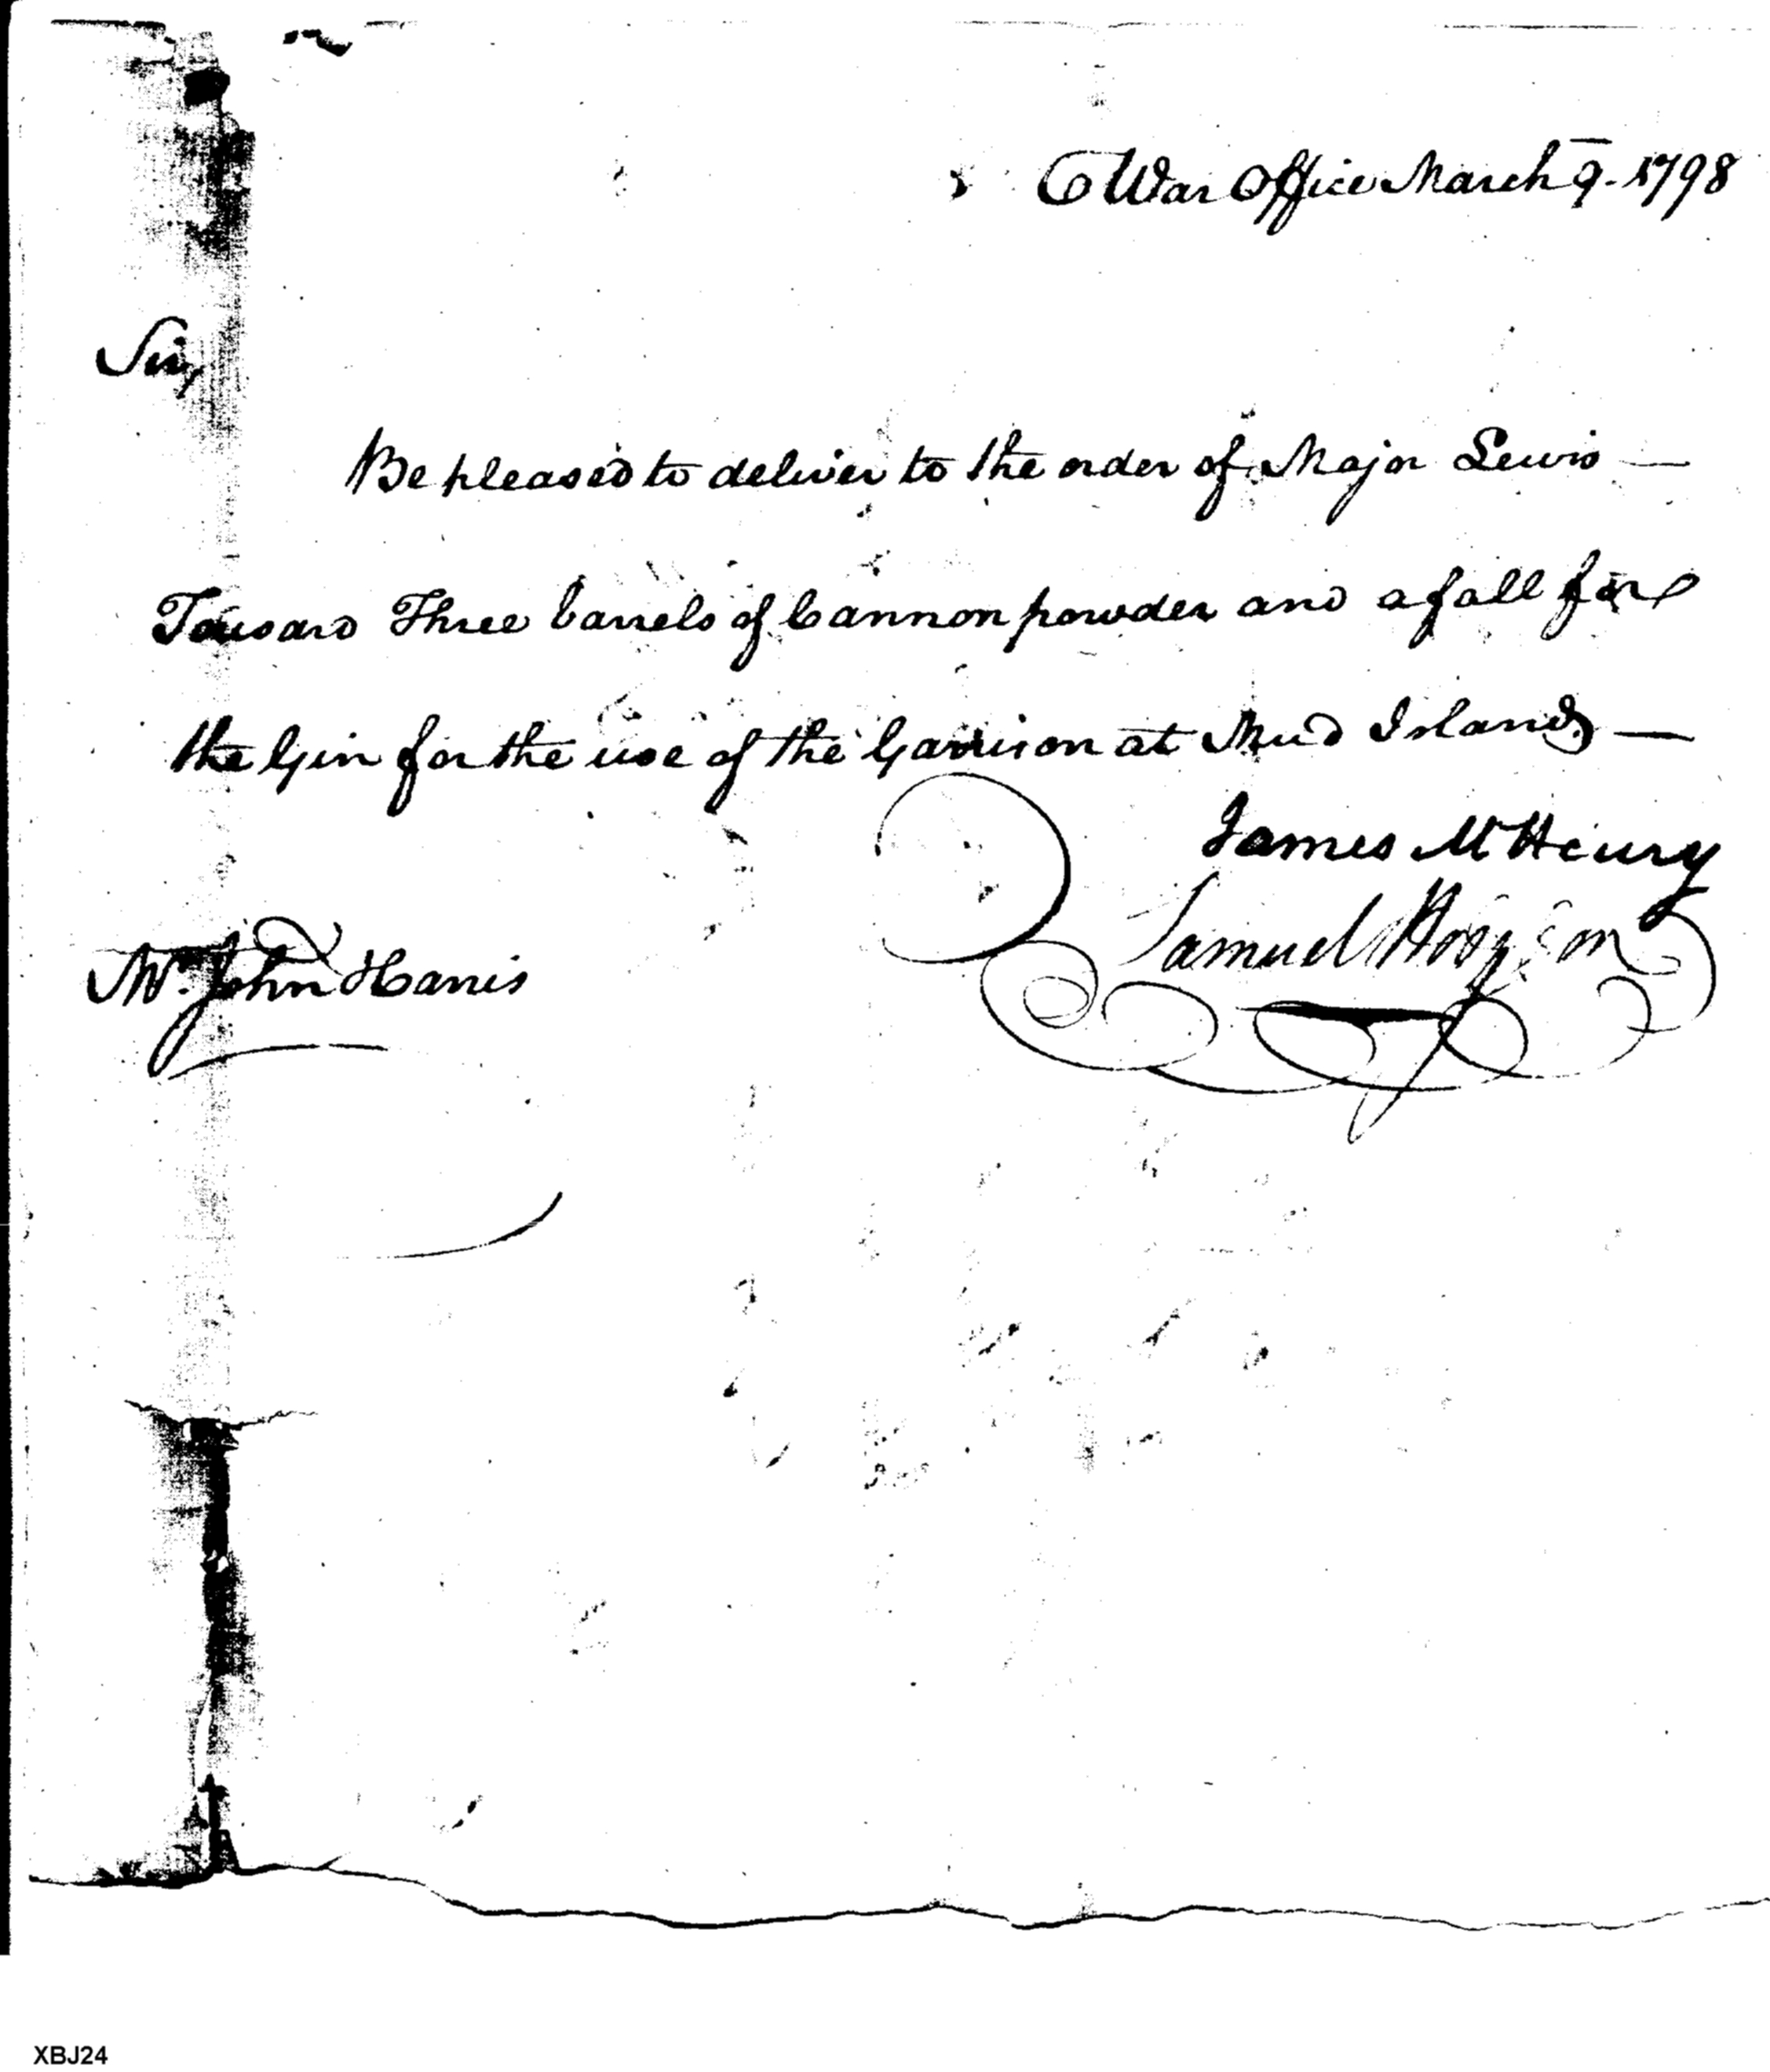 War Office March 9. 1798
Sir,
Be pleased to deliver to the order of Major Lewis —
Tousard Three barrels of Cannon powder and a fall for
the Gin for the use of the Garrison at Mud Island —
James McHenry
Samuel Hodgson
Mr. John Harris
XBJ24